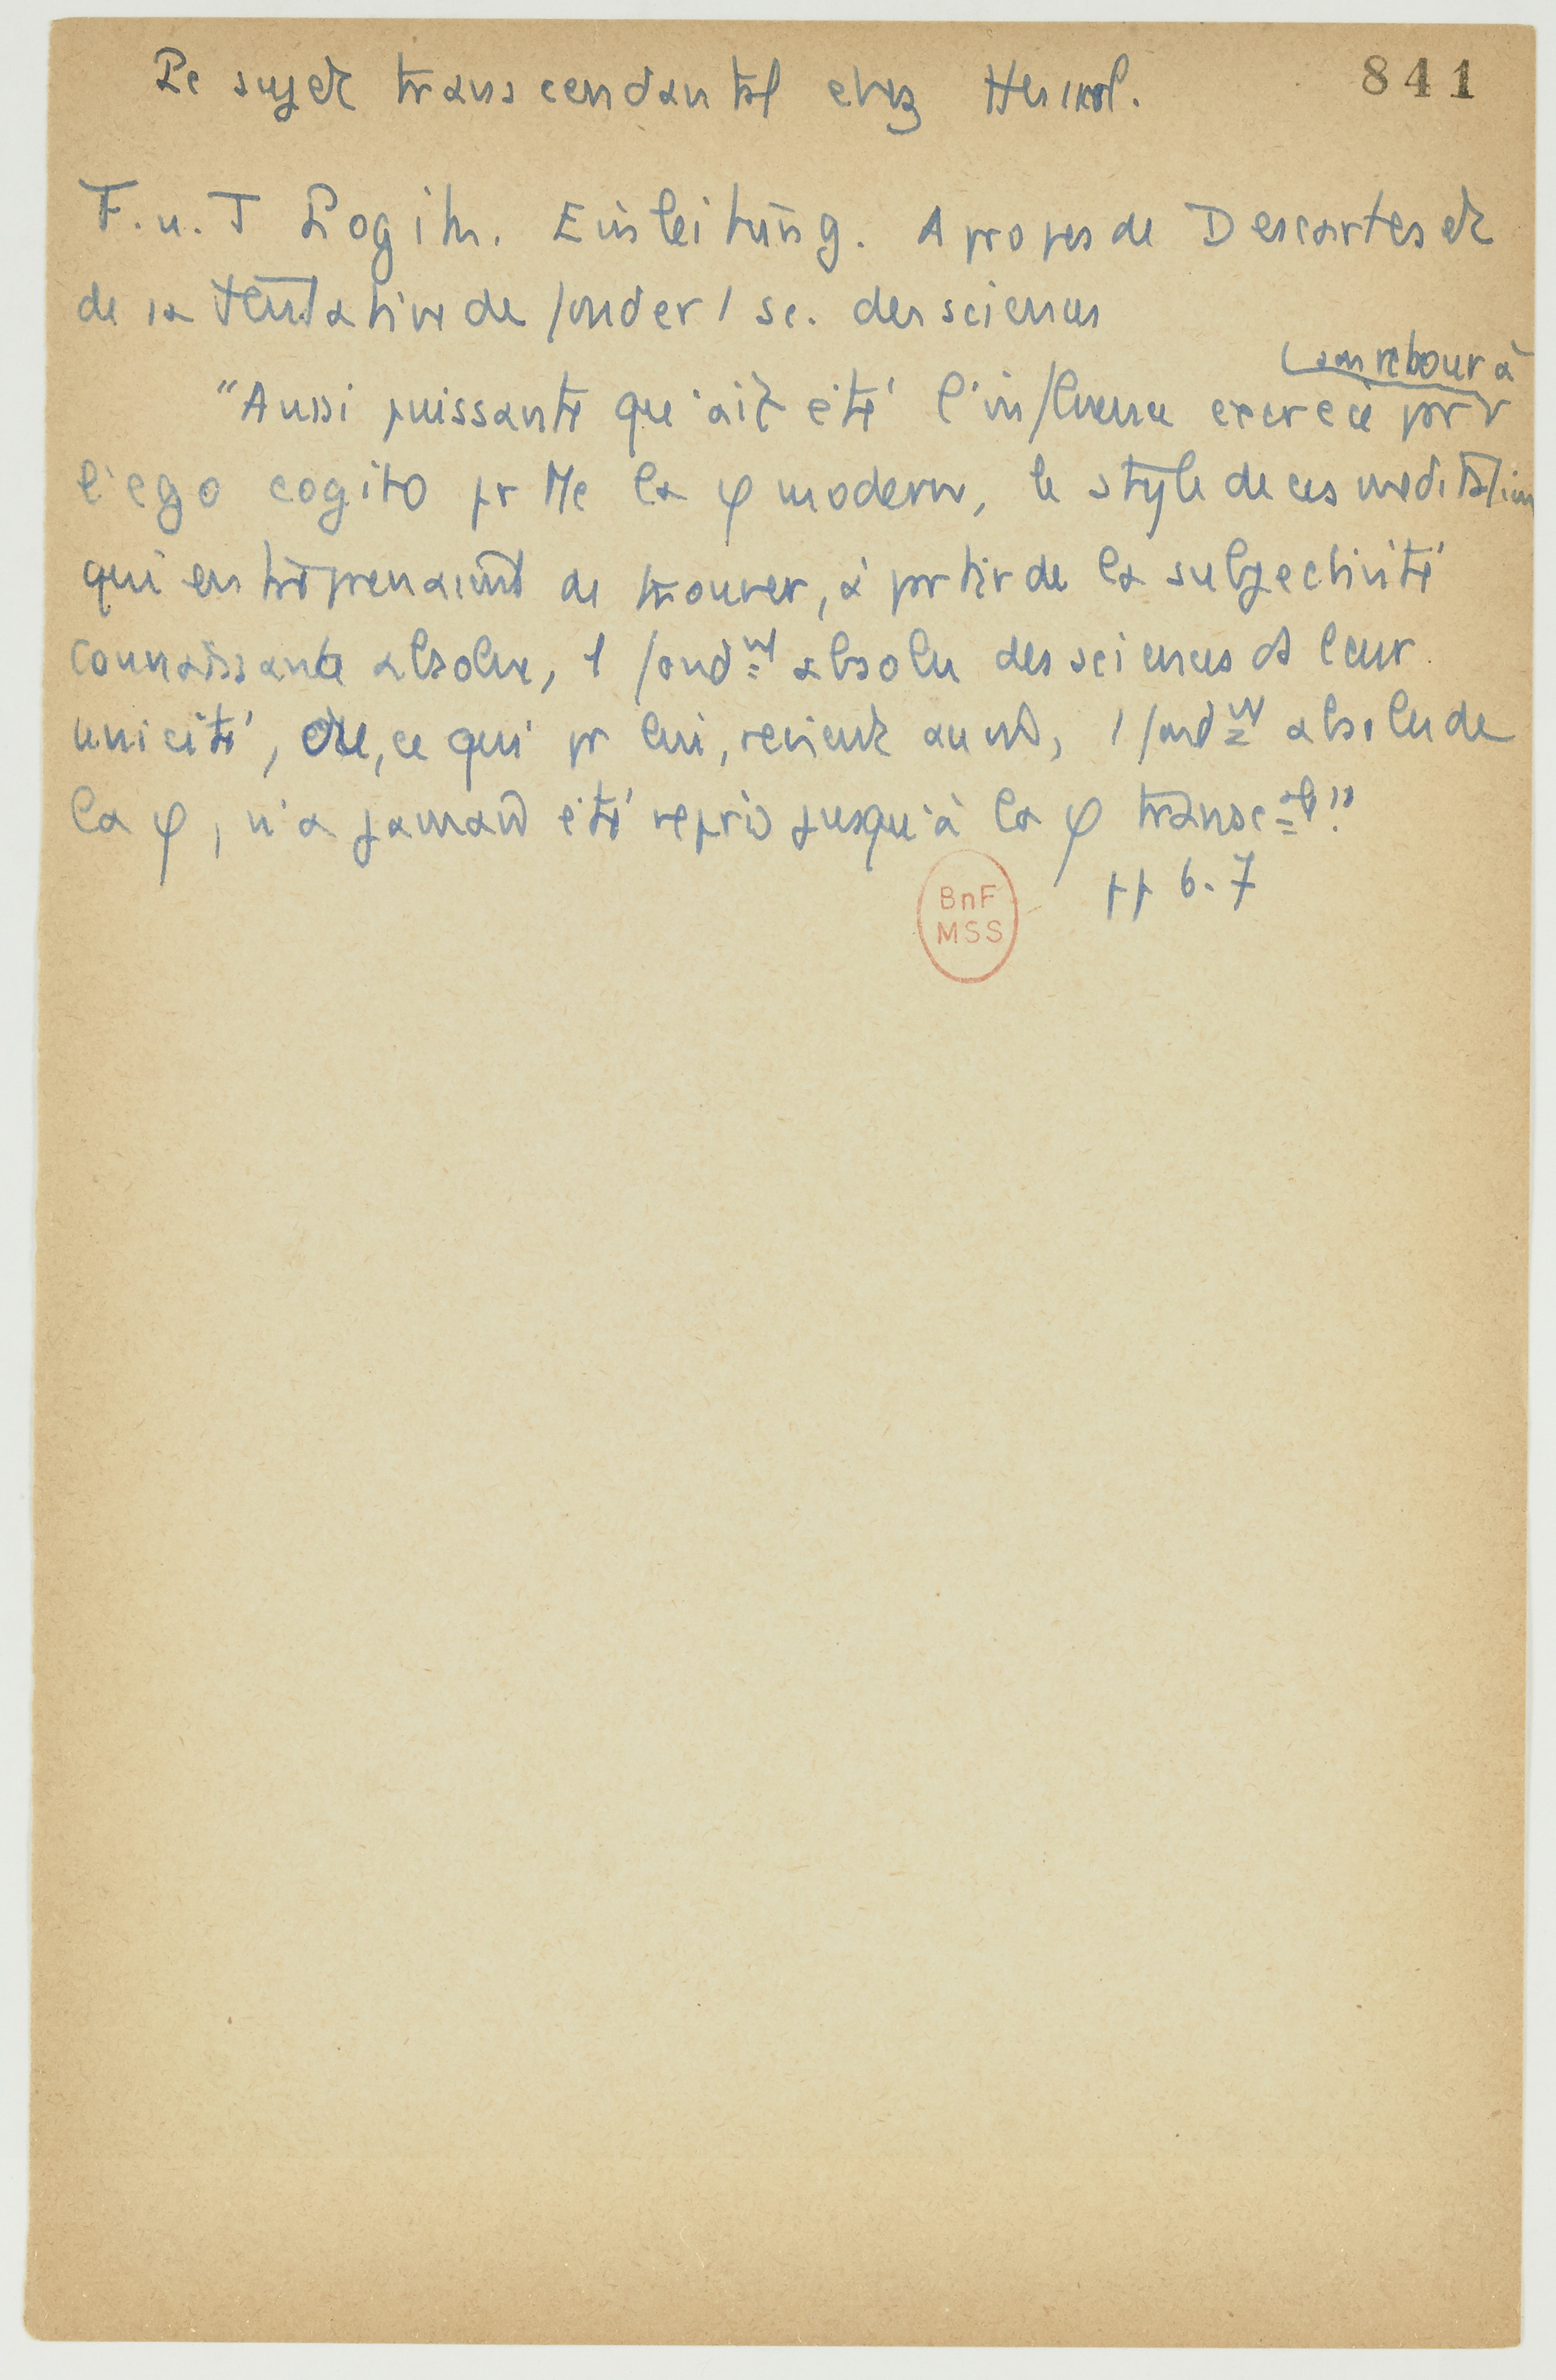 Le sujet transcendantal chez Husserl.
841
F. u. T Logik. Einleitung. A propos de Descartes et
de sa tentative de fonder 1 sc. des sciences
son retour à
"Aussi puissante qu'ait été l'influence exercée par
l'ego cogito pr te la φ moderne, le style de ces méditations
qui entreprenaient de trouver, à partir de la subjectivité
connaissante absolue, 1 fondnt absolu des sciences et leur
unicité, ou, ce qui pr lui, revient au m̂, 1 fondnt absolu de
la φ, n'a jamais été repris jusqu'à la φ transcale."
pp 6-7
BnF
MSS